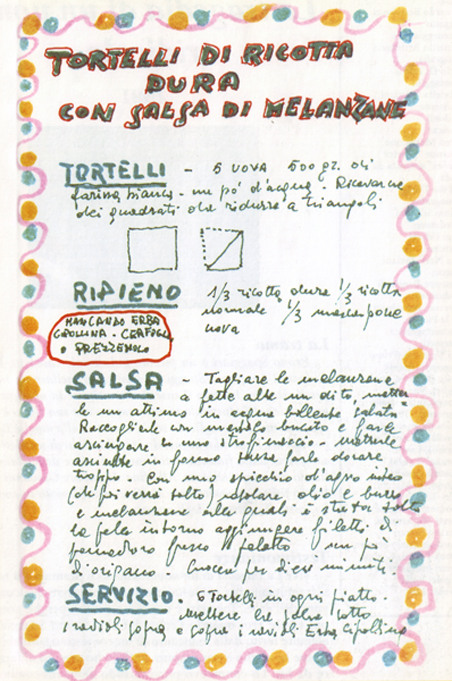 TORTELLI DI RICOTTA
DURA
CON SALSA DI MELANZANE
TORTELLI - 5 UOVA 500 gr. di
farina bianca - un pó d'acqua - Ricavarne
dei quadrati da ridurre a triangoli
RIPIENO 1/3 ricotta dura 1/3 ricotta
normale 1/3 mascarpone
uova
MANCANDO ERBA
CIPOLLINA - CERFOGLIO
o PREZZEMOLO
SALSA - Tagliare le melanzane
a fette alte un dito, metter
le un attimo in acqua bollente salata
Raccoglierle con mestolo bucato e farle
asciugare in uno strofinaccio - metterle
asciutte in forno senza farle dorare
troppo - Con uno spicchio d'aglio intero
(che poi verrà tolto) rosolare olio e burro
e melanzane alle quali è stata tolta
la pelle intorno aggiungere filetti di
pomodoro fresco pelato un pò
d'origano. Cuocere per dieci minuti.
SERVIZIO. 6 Tortelli in ogni piatto.
mettere la salsa sotto
i ravioli sopra e sopra i ravioli Erba Cipollina